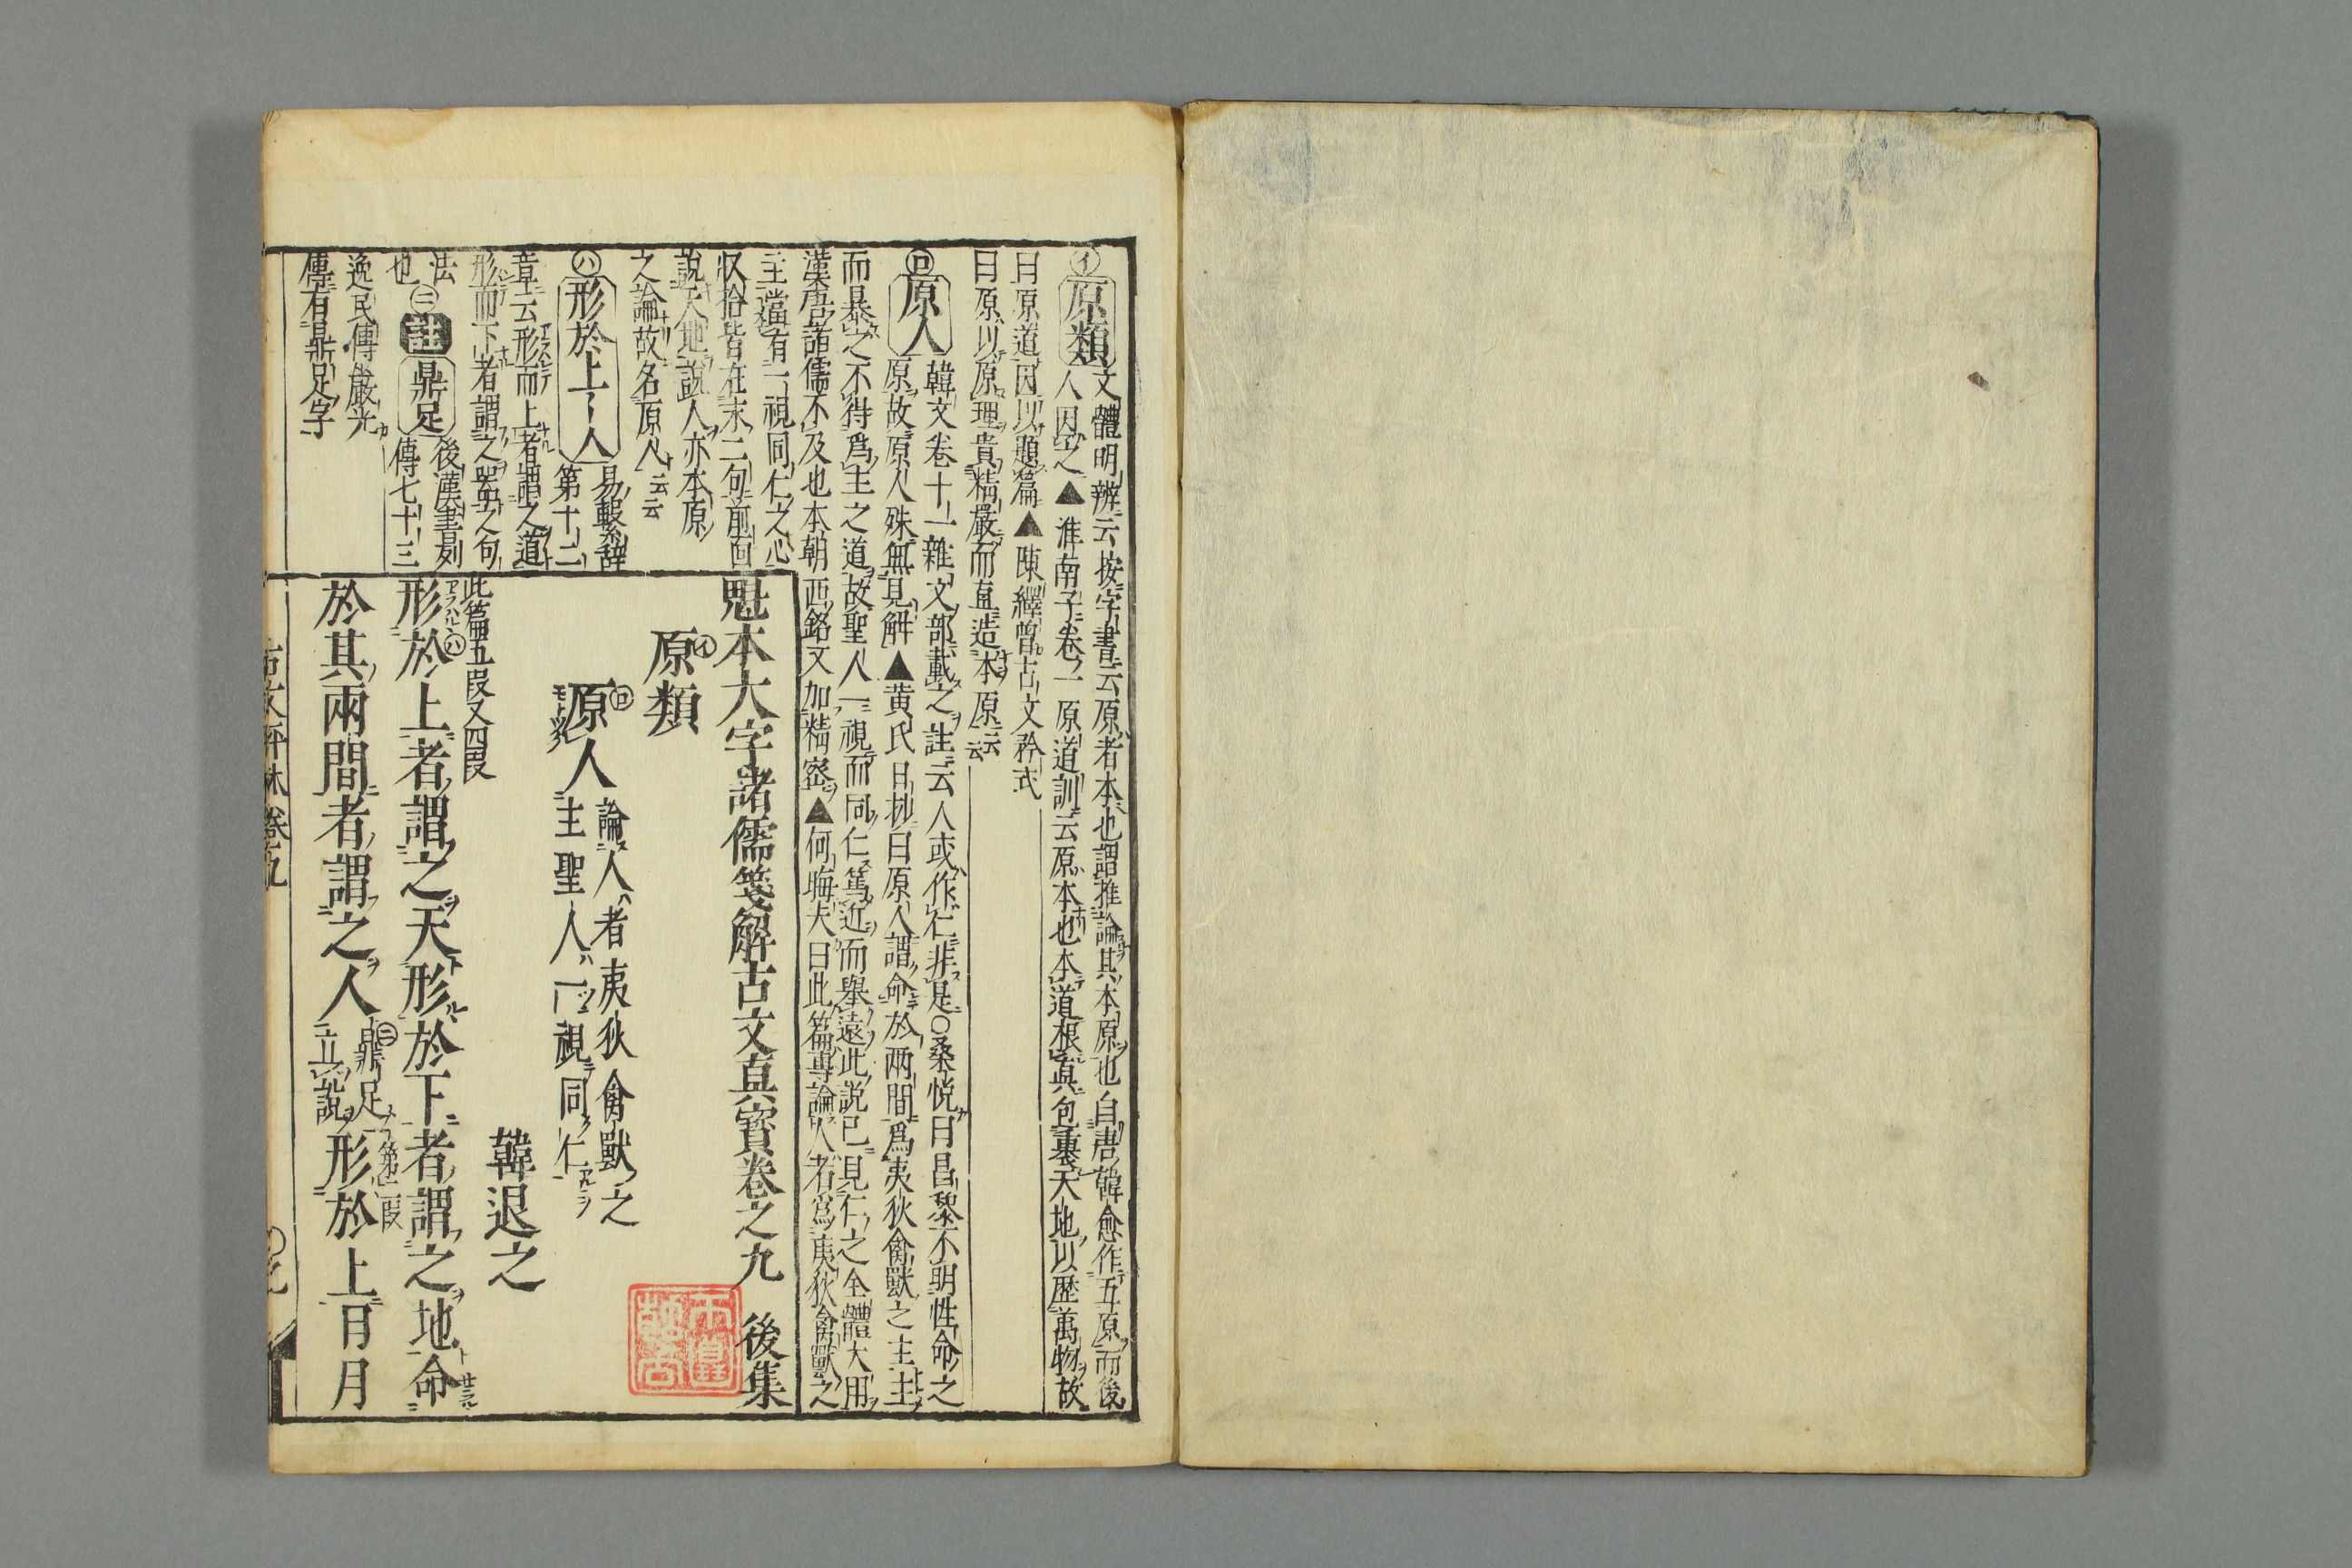 ㋑原類
文體明辨云按字書云原者本也謂推論其本原也自唐韓愈作五原而後
人因之▲淮南子卷一原道訓云原本也本道根眞包裹天地以歷萬物故
曰原道因以題篇▲陳繹曾古文矜式
曰原以原理貴精嚴而直造本原云云
㋺原人
韓文卷十一雜文部載之註云人或作仁非是○桑悅曰昌黎不明性命之
原故原人殊無見解▲黄氏日抄曰原人謂命於兩間爲夷狄禽獸之主主
而暴之不得爲主之道故聖人一視而同仁篤近而舉遠此說已見仁之全體大用
漢唐諸儒不及也本朝西銘文加精宻▲何晦夫曰此篇專論人者爲夷狄禽獸之
主當有一視同仁之心
収拾皆在末二句前面
說天地說人亦本原
之論故名原人云云
㋩形於上人
易繫辭
第十二
章云形而上者謂之道
形而下者謂之器之句
法
也㊁註鼎足
後漢書列
傳七十三
逸民傳嚴光
傳有鼎足字
魁本大字諸儒箋解古文真寳卷之九 後集
㋑原類
㋺原人
論人者夷狄禽獸之
主聖人一視同仁
韓退之
此篇五段又四段
形㋩於上者謂之天形於下者謂之地命
於其兩間者謂之人
㊁鼎足
立說
第一段
形於上日月
卷九